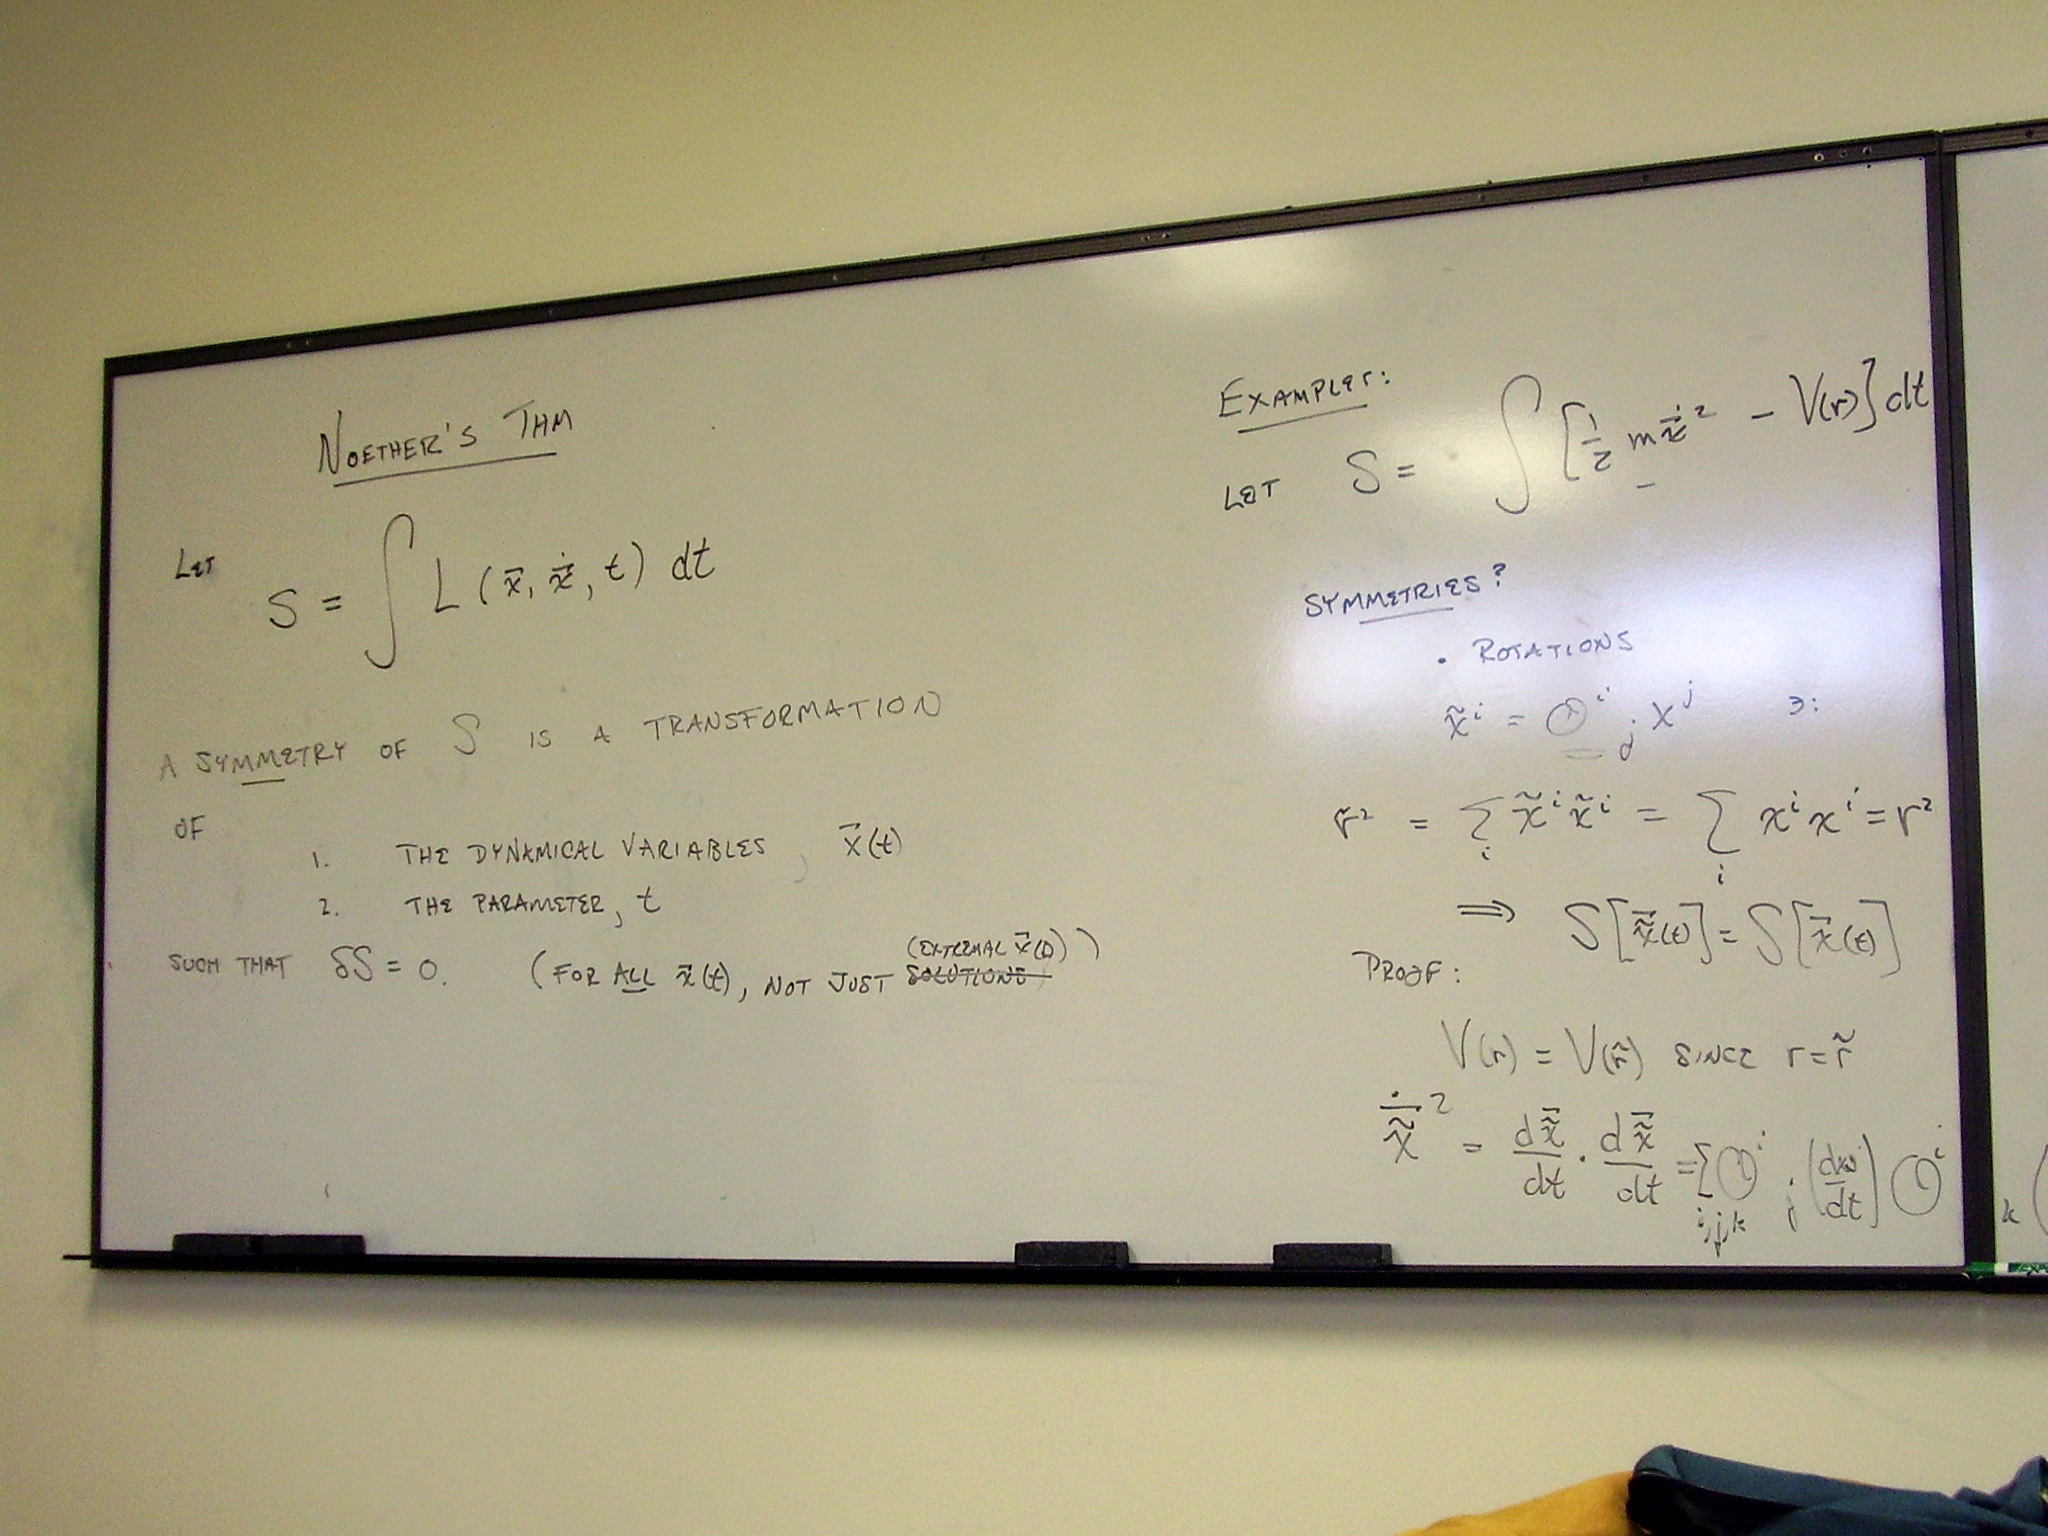 NOETHER'S THM
LET S = ∫ L (x⃗, ẋ⃗, t) dt
A SYMMETRY OF S IS A TRANSFORMATION
OF
1. THE DYNAMICAL VARIABLES, x⃗(t)
2. THE PARAMETER, t
(EXTREMAL x⃗(t))
SUCH THAT δS = 0. (FOR ALL x⃗(t), NOT JUST SOLUTIONS)
EXAMPLES:
LET S = ∫ [½ mẋ⃗² − V(r)] dt
SYMMETRIES?
• ROTATIONS
x̃ⁱ = Oⁱⱼ xʲ ∋:
r̃² = Σᵢ x̃ⁱ x̃ⁱ = Σᵢ xⁱ xⁱ = r²
⟹ S[x̃⃗(t)] = S[x⃗(t)]
PROOF:
V(r) = V(r̃) SINCE r = r̃
ẋ̃⃗² = dx̃⃗/dt · dx̃⃗/dt = Σ_{i,j,k} Oⁱⱼ (dxʲ/dt) Oⁱ k (